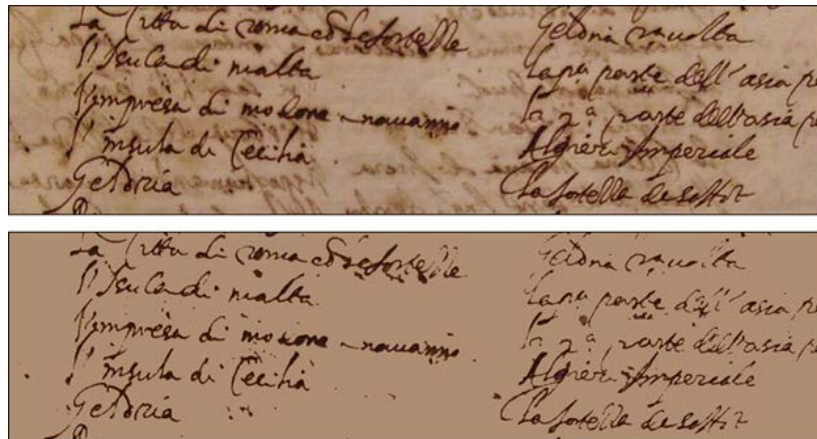 La Citta di roma cō le fortelle
l'Isula di malta
l'impresa di modone e nauarino
l'insula di Cecilia
Geldria
Geldria racolta
la pª parte dell'asia
la 2ª parte dell'asia
Algieri Imperiale
la fortella de
La Citta di roma cō le fortelle
l'Isula di malta
l'impresa di modone e nauarino
l'insula di Cecilia
Geldria
Geldria racolta
la pª parte dell'asia
la 2ª parte dell'asia
Algieri Imperiale
la fortella de